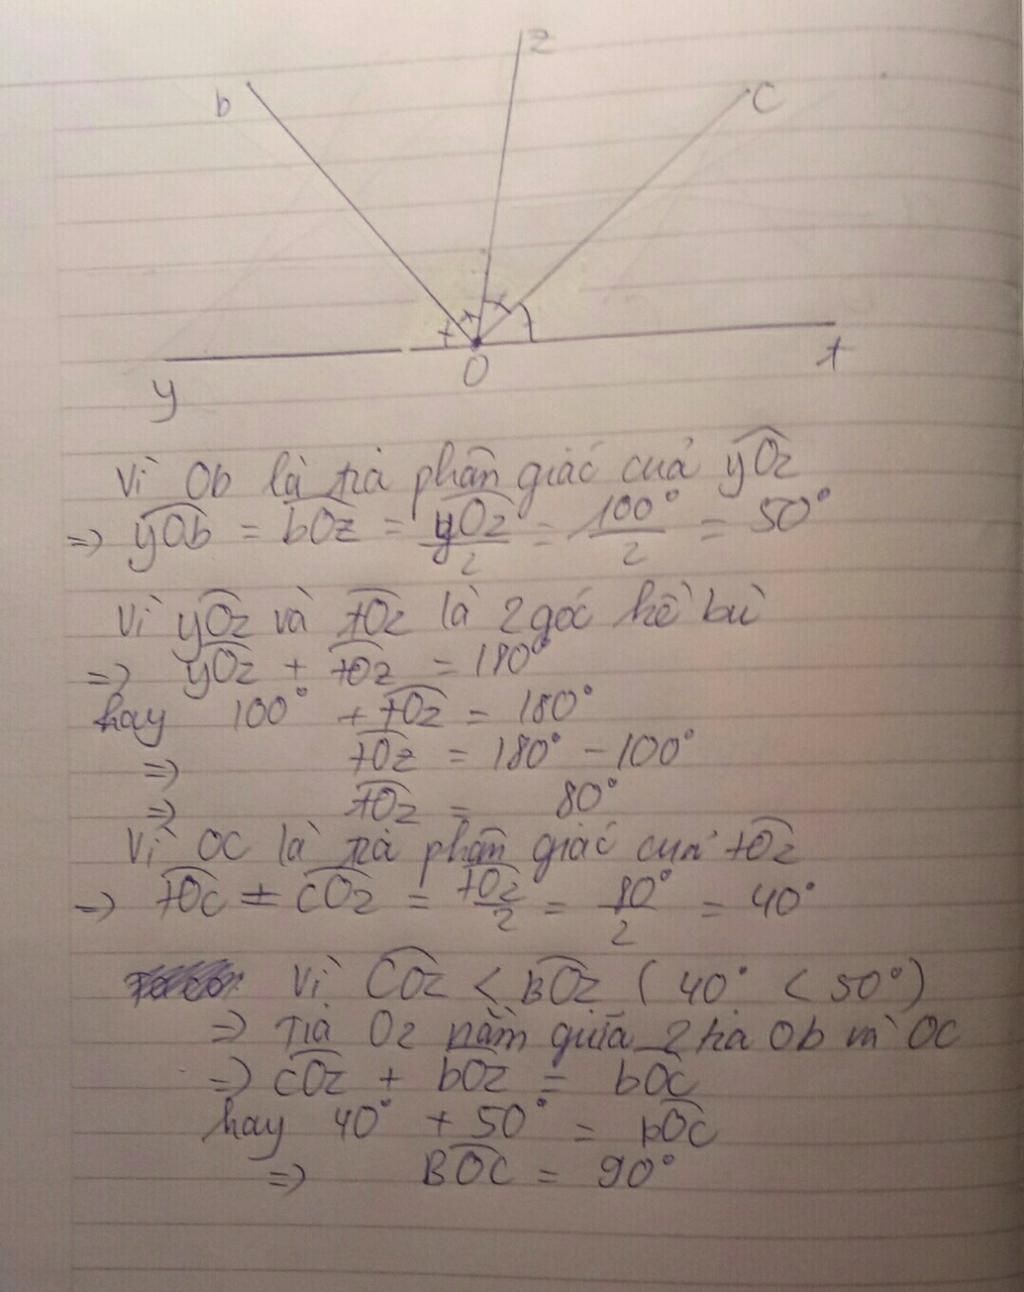 b
z
c
y
O
t
Vì Ob là tia phân giác cuả yOz
=> yOb = bOz = yOz/2 = 100°/2 = 50°
Vì yOz và tOz là 2 góc kề bù
=> yOz + tOz = 180°
hay 100° + tOz = 180°
=> tOz = 180° - 100°
=> tOz = 80°
Vì OC là tia phân giác cuả tOz
=> tOc = cOz = tOz/2 = 80°/2 = 40°
Vì COz < BOz ( 40° < 50° )
=> Tia Oz nằm giữa 2 tia Ob và OC
=> cOz + bOz = bOC
hay 40° + 50° = bOC
=> BOC = 90°